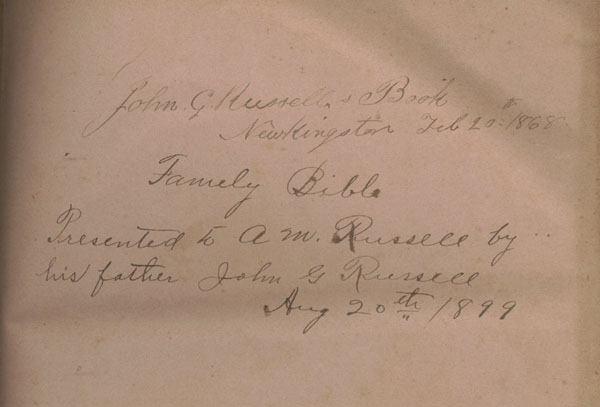 John. G. Russell, s Book
New Kingston Feb 20th 1868
Famely Bible
Presented to A M. Russell by
his father John G Russell
Aug 20th 1899